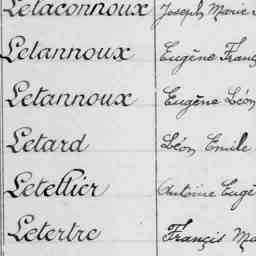 Letaconnoux Joseph Marie
Letannoux Eugène Franç
Letannoux Eugène Léon
Letard Léon Emile
Letellier Antoine Eugè
Letertre François Ma